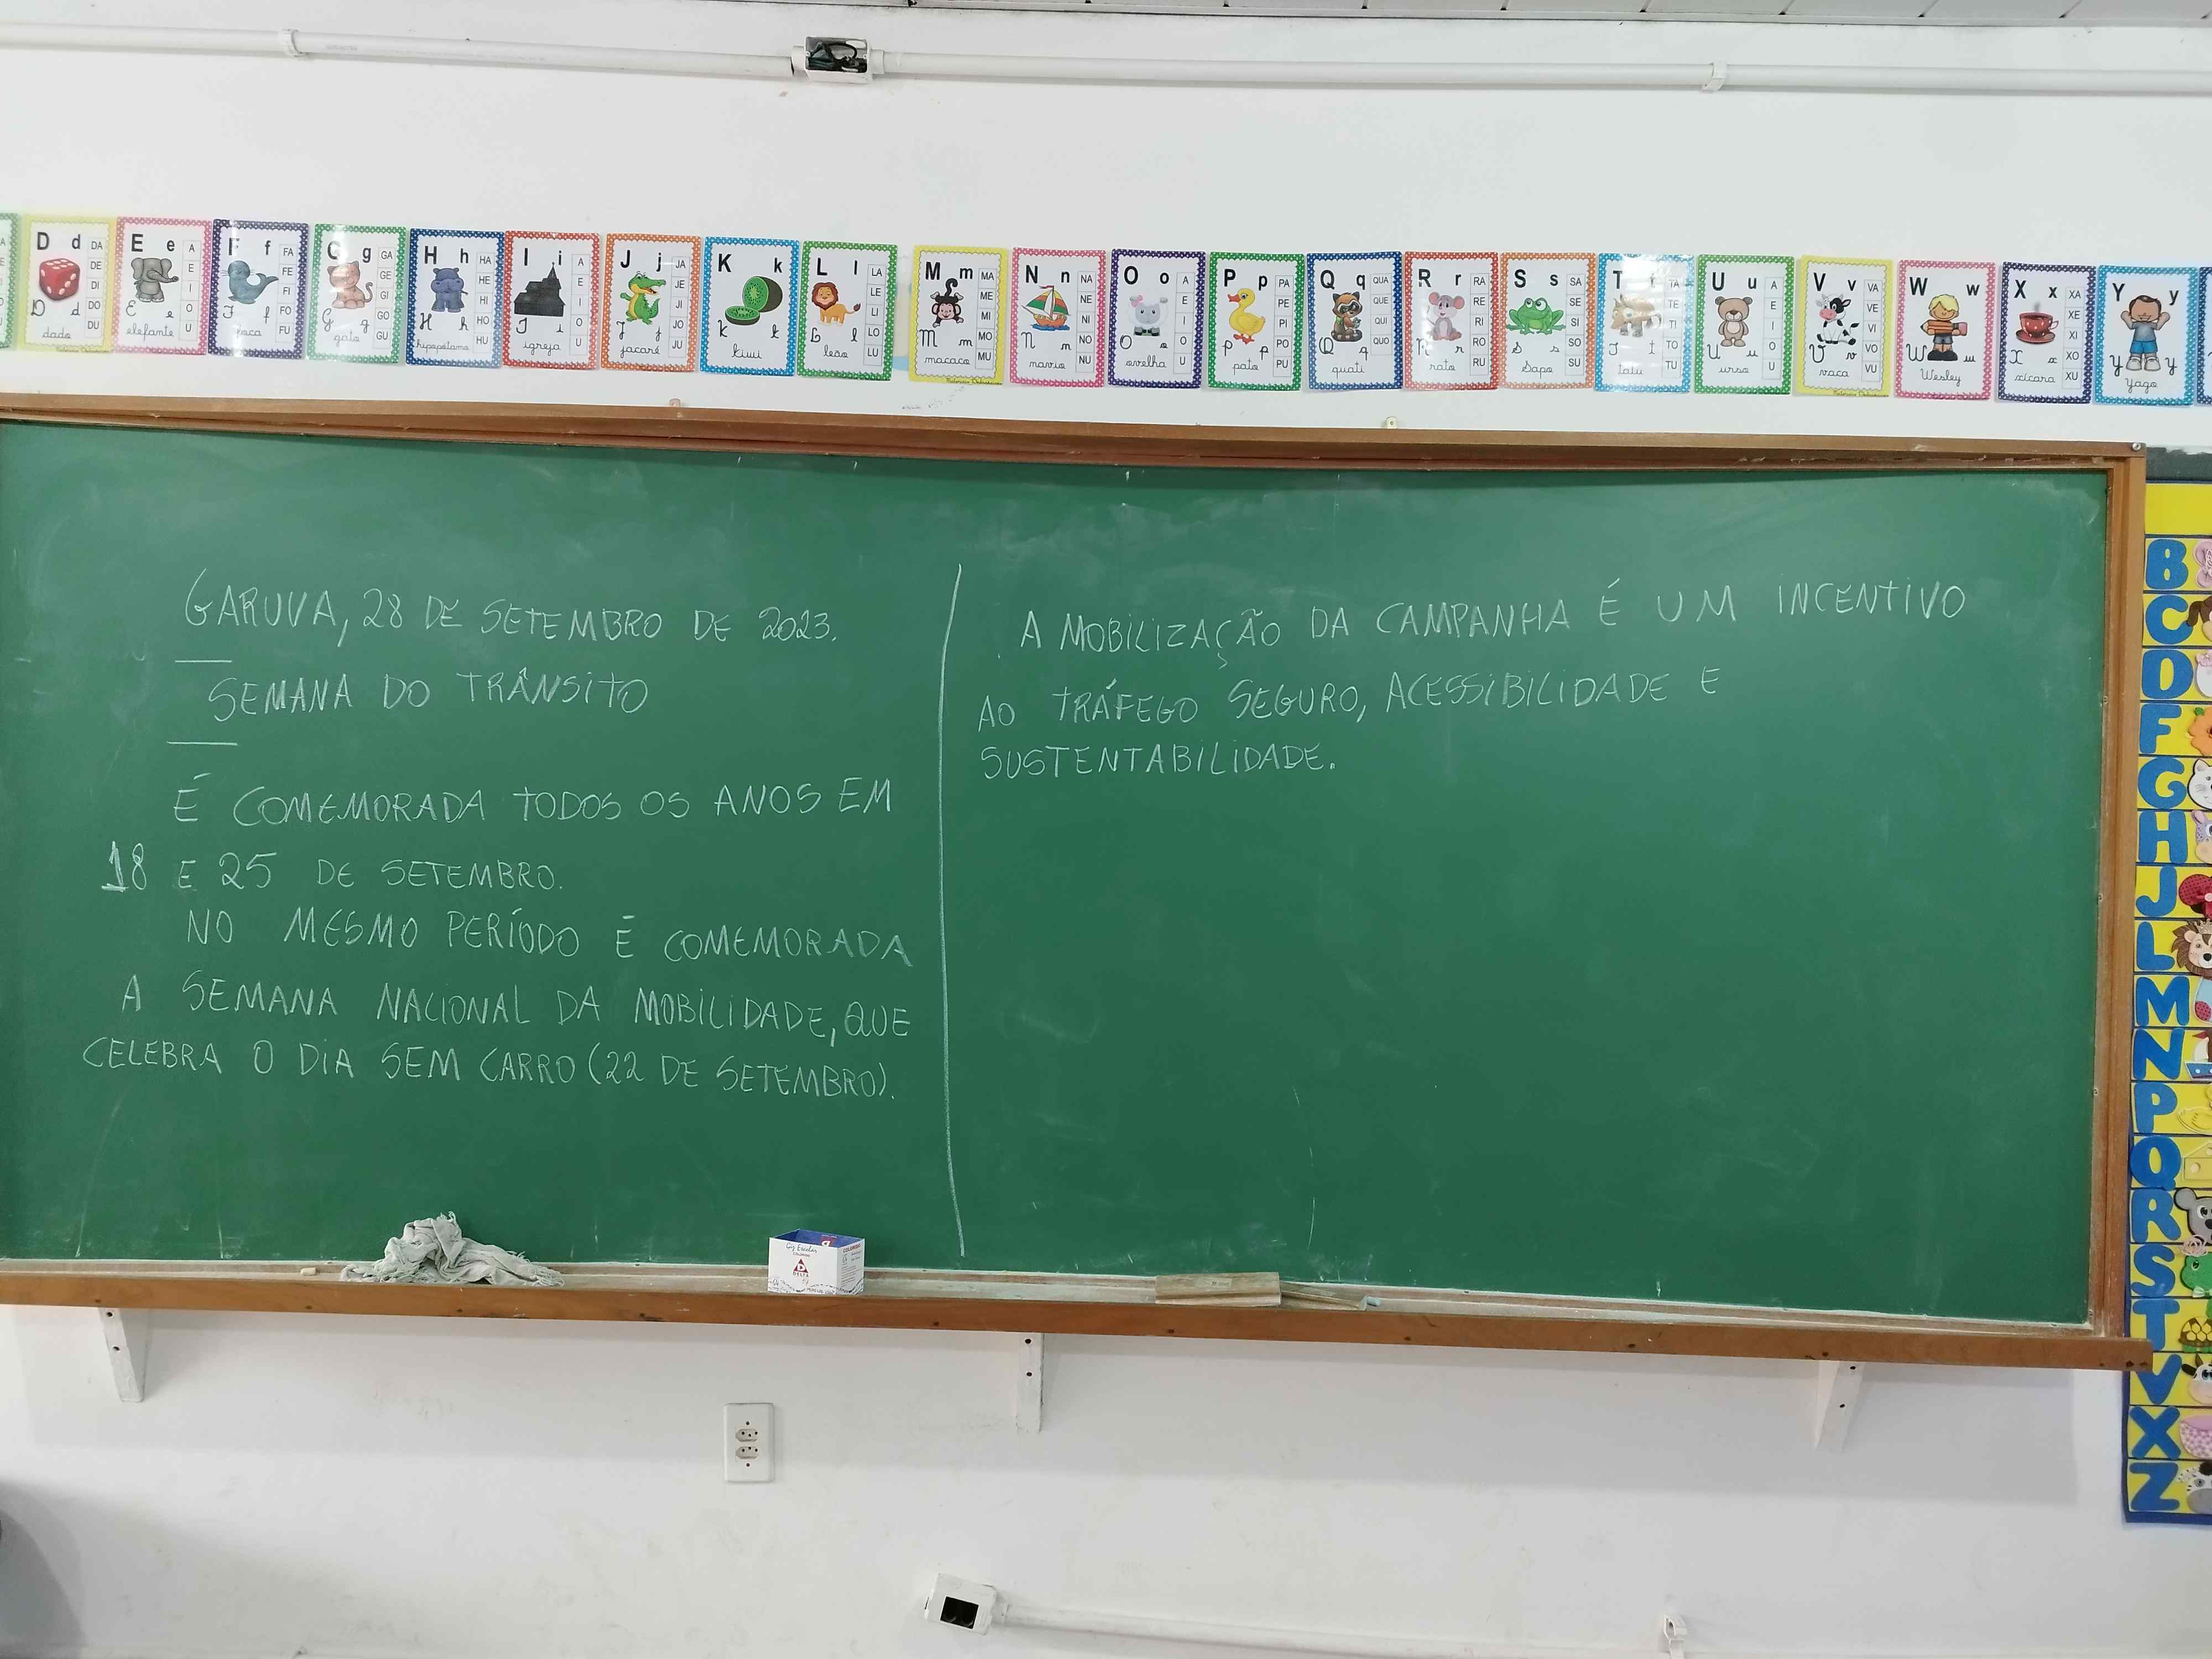 D d DA DE DI DO DU D d dado
E e A E I O U E e elefante
F f FA FE FI FO FU F f foca
G g GA GE GI GO GU G g gato
H h HA HE HI HO HU H h hipopótamo
I i A E I O U I i igreja
J j JA JE JI JO JU J j jacaré
K k K k kiwi
L l LA LE LI LO LU L l leão
M m MA ME MI MO MU M m macaco
N n NA NE NI NO NU N n navio
O o A E I O U O o ovelha
P p PA PE PI PO PU P p pato
Q q QUA QUE QUI QUO Q q quati
R r RA RE RI RO RU R r rato
S s SA SE SI SO SU S s Sapo
T t TA TE TI TO TU T t tatu
U u A E I O U U u urso
V v VA VE VI VO VU V v vaca
W w W w Wesley
X x XA XE XI XO XU X x xícara
Y y Y y Yago
GARUVA, 28 DE SETEMBRO DE 2023.
SEMANA DO TRÂNSITO
É COMEMORADA TODOS OS ANOS EM
18 E 25 DE SETEMBRO.
NO MESMO PERÍODO É COMEMORADA
A SEMANA NACIONAL DA MOBILIDADE, QUE
CELEBRA O DIA SEM CARRO (22 DE SETEMBRO).
A MOBILIZAÇÃO DA CAMPANHA É UM INCENTIVO
AO TRÁFEGO SEGURO, ACESSIBILIDADE E
SUSTENTABILIDADE.
Giz Escolar
DELTA
B
C
D
F
G
H
J
L
M
N
P
Q
R
S
T
V
X
Z